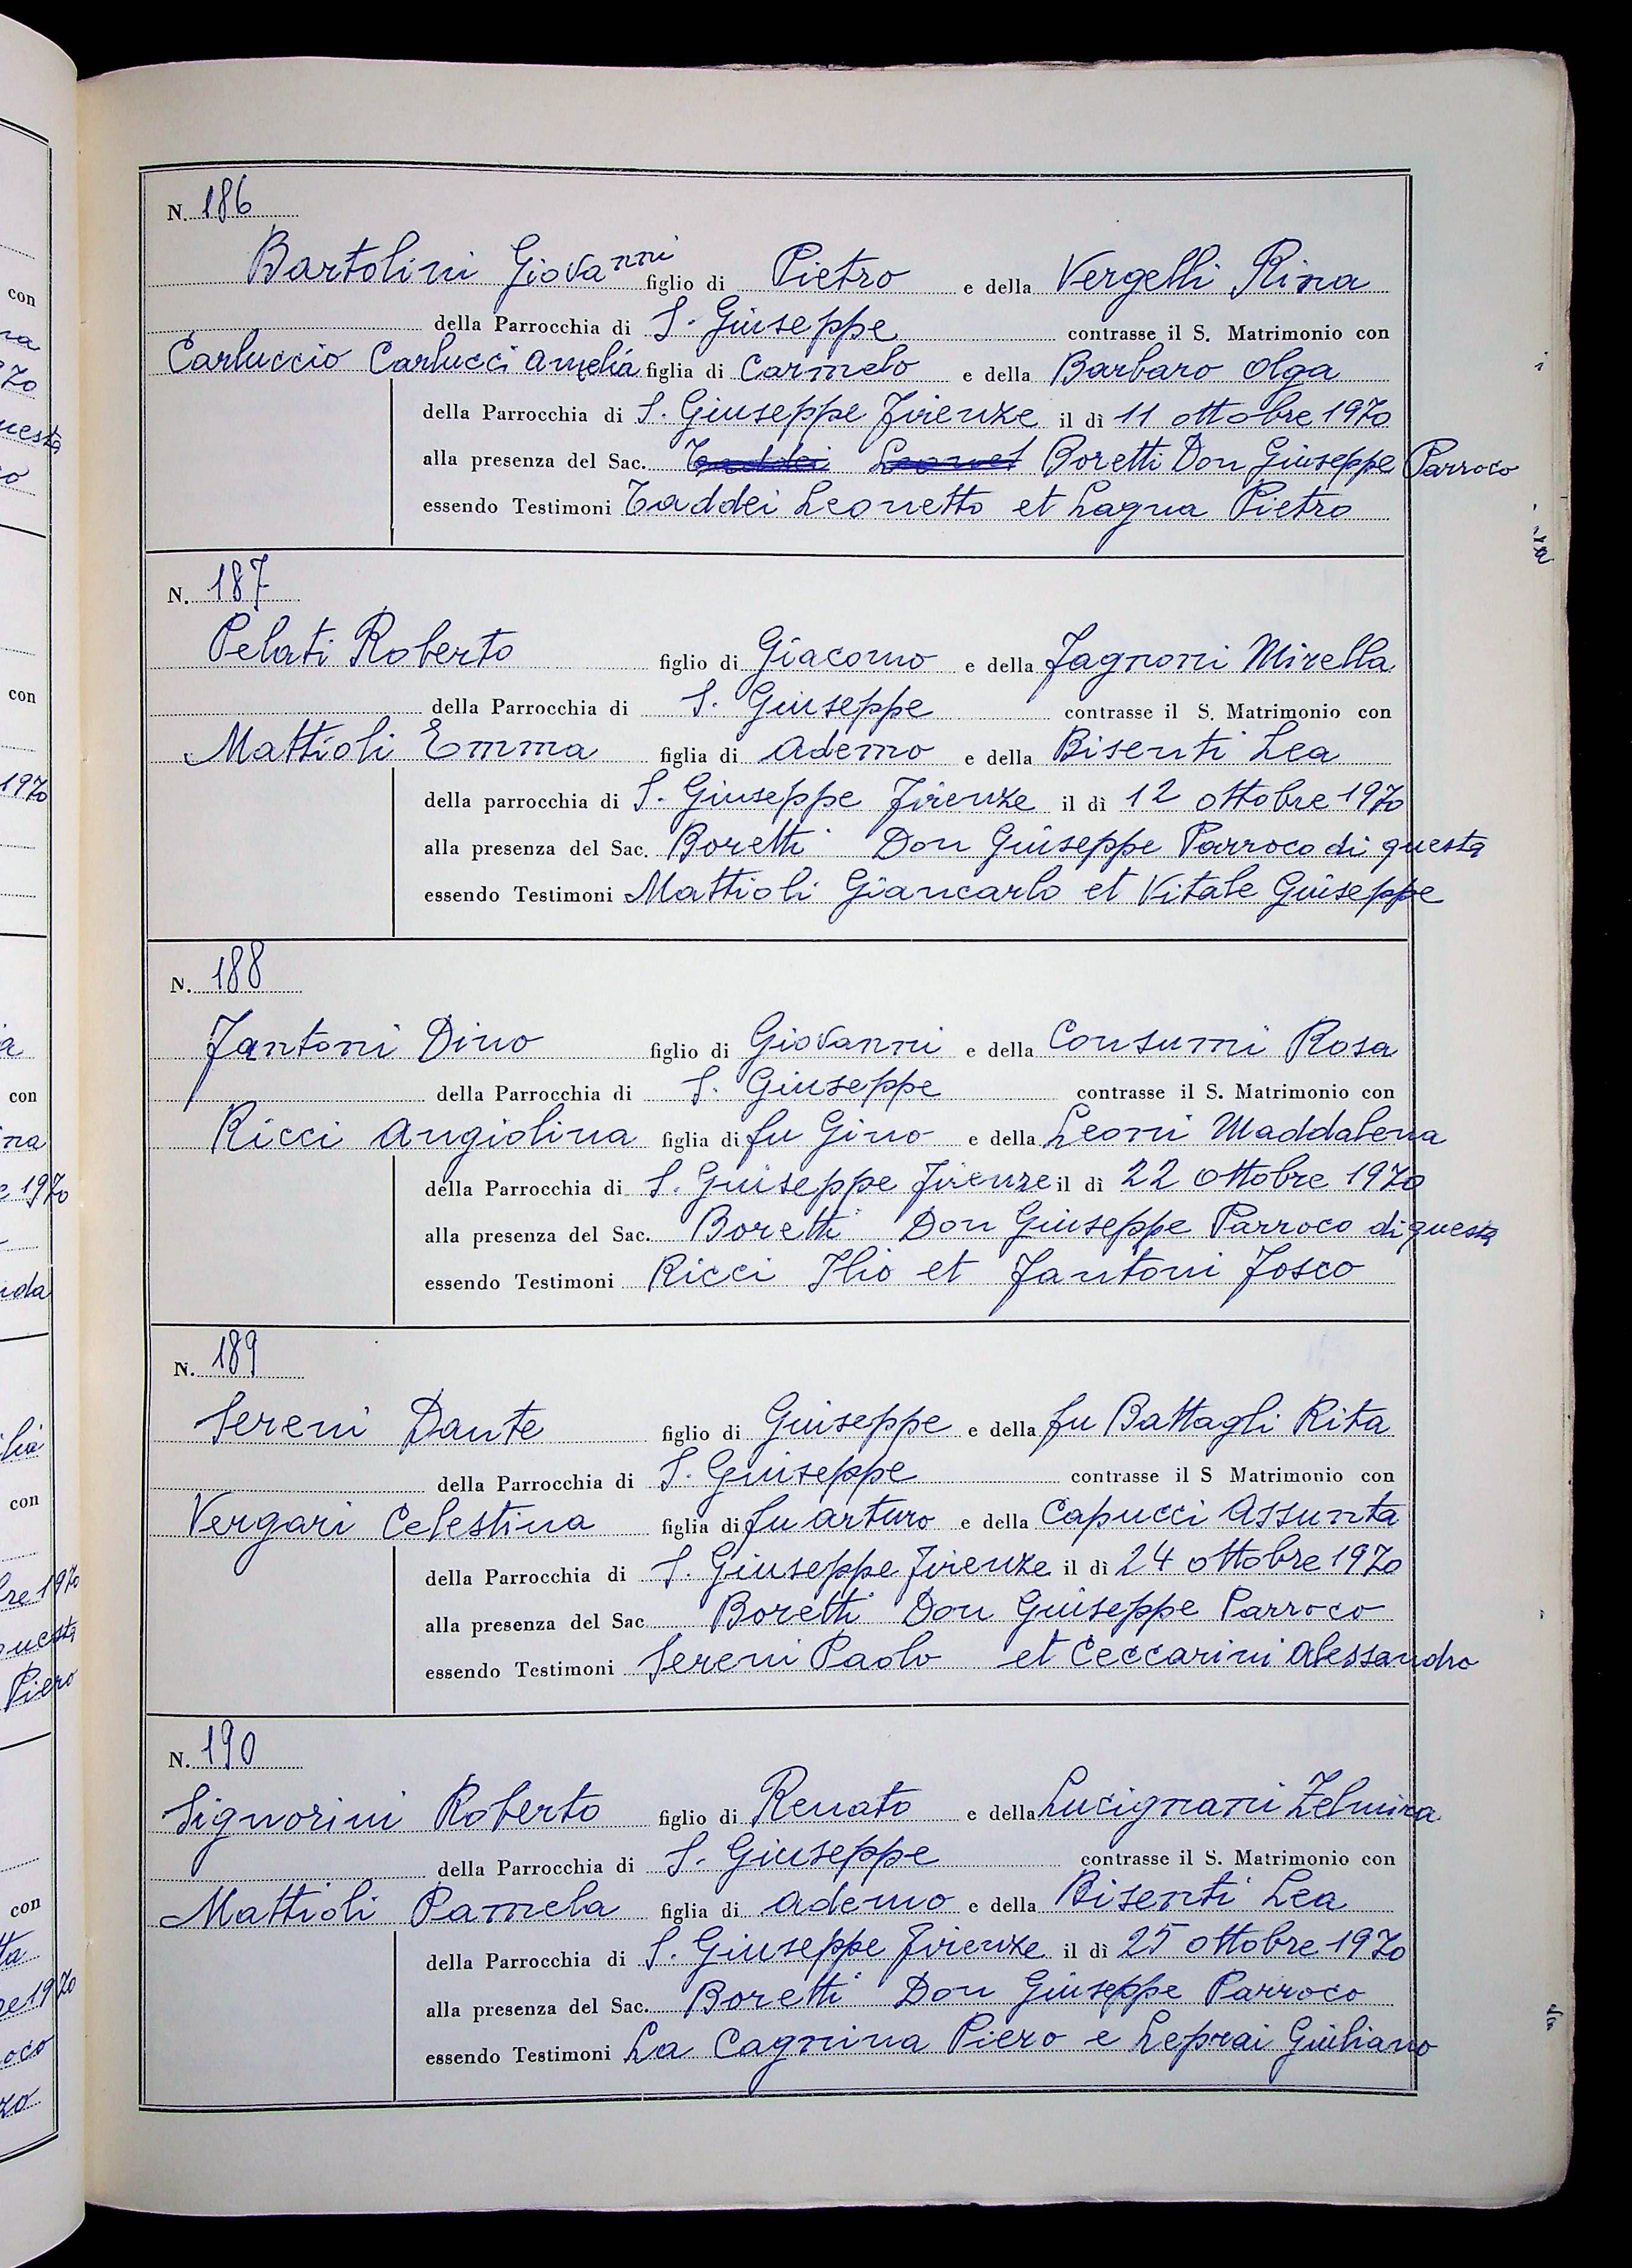 N. 186
Bartolini Giovanni figlio di Pietro e della Vergelli Rina
della Parrocchia di S. Giuseppe contrasse il S. Matrimonio con
Carluccio Carlucci Amelia figlia di Carmelo e della Barbaro Olga
della Parrocchia di S. Giuseppe Firenze il dì 11 ottobre 1970
alla presenza del Sac. Taddei Boretti Don Giuseppe Parroco
essendo Testimoni Taddei Leonetto et Lagna Pietro
N. 187
Pelati Roberto figlio di Giacomo e della Fagnoni Mirella
della Parrocchia di S. Giuseppe contrasse il S. Matrimonio con
Mattioli Emma figlia di Ademo e della Bisenti Lea
della parrocchia di S. Giuseppe Firenze il dì 12 ottobre 1970
alla presenza del Sac. Boretti Don Giuseppe Parroco di questa
essendo Testimoni Mattioli Giancarlo et Vitale Giuseppe
N. 188
Fantoni Dino figlio di Giovanni e della Consumi Rosa
della Parrocchia di S. Giuseppe contrasse il S. Matrimonio con
Ricci Angiolina figlia di fu Gino e della Leoni Maddalena
della Parrocchia di S. Giuseppe Firenze il dì 22 ottobre 1970
alla presenza del Sac. Boretti Don Giuseppe Parroco di questa
essendo Testimoni Ricci Ilio et Fantoni Fosco
N. 189
Sereni Dante figlio di Giuseppe e della fu Battagli Rita
della Parrocchia di S. Giuseppe contrasse il S Matrimonio con
Vergari Celestina figlia di fu Arturo e della Capucci Assunta
della Parrocchia di S. Giuseppe Firenze il dì 24 ottobre 1970
alla presenza del Sac. Boretti Don Giuseppe Parroco
essendo Testimoni Sereni Paolo et Ceccarini Alessandro
N. 190
Signorini Roberto figlio di Renato e della Lucignani Zelmira
della Parrocchia di S. Giuseppe contrasse il S. Matrimonio con
Mattioli Pamela figlia di Ademo e della Bisenti Lea
della Parrocchia di S. Giuseppe Firenze il dì 25 ottobre 1970
alla presenza del Sac. Boretti Don Giuseppe Parroco
essendo Testimoni La Cagnina Piero e Leprai Giuliano